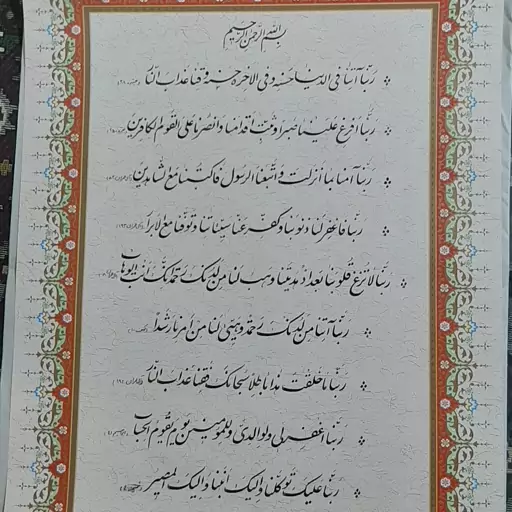 بسم الله الرحمن الرحیم
ربنا آتنا فی الدنیا حسنة و فی الآخرة حسنة و قنا عذاب النار
ربنا افرغ علینا صبرا و ثبت اقدامنا و انصرنا علی القوم الکافرین
ربنا آمنا بما انزلت و اتبعنا الرسول فاکتبنا مع الشاهدین
ربنا فاغفر لنا ذنوبنا و کفر عنا سیئاتنا و توفنا مع الابرار
ربنا لا تزغ قلوبنا بعد اذ هدیتنا و هب لنا من لدنک رحمة انک انت الوهاب
ربنا آتنا من لدنک رحمة و هیئ لنا من امرنا رشدا
ربنا ما خلقت هذا باطلا سبحانک فقنا عذاب النار
ربنا اغفر لی و لوالدی و للمؤمنین یوم یقوم الحساب
ربنا علیک توکلنا و الیک انبنا و الیک المصیر